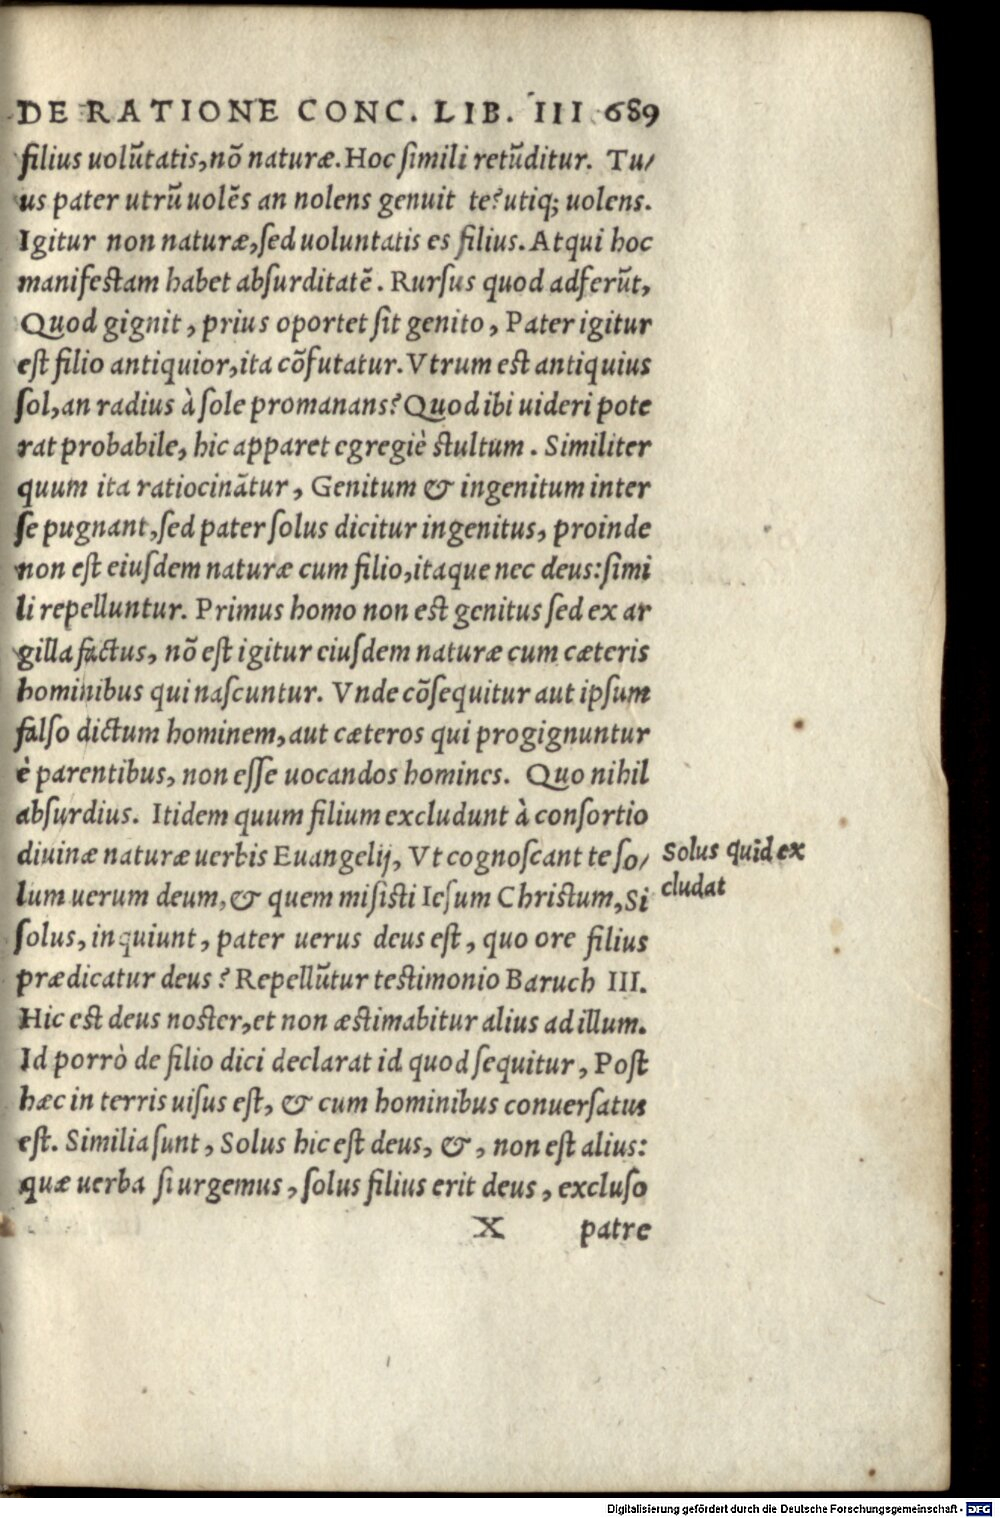 DE RATIONE CONC. LIB. III 689
filius uolũtatis, nõ naturæ. Hoc simili retũditur. Tu/
us pater utrũ uolẽs an nolens genuit te? utiq; uolens.
Igitur non naturæ, sed uoluntatis es filius. Atqui hoc
manifestam habet absurditatẽ. Rursus quod adferũt,
Quod gignit, prius oportet sit genito, Pater igitur
est filio antiquior, ita cõfutatur. Vtrum est antiquius
sol, an radius à sole promanans? Quod ibi uideri pote
rat probabile, hic apparet egregiè stultum. Similiter
quum ita ratiocinãtur, Genitum & ingenitum inter
se pugnant, sed pater solus dicitur ingenitus, proinde
non est eiusdem naturæ cum filio, itaque nec deus: simi
li repelluntur. Primus homo non est genitus sed ex ar
gilla factus, nõ est igitur eiusdem naturæ cum cæteris
hominibus qui nascuntur. Vnde cõsequitur aut ipsum
falso dictum hominem, aut cæteros qui progignuntur
è parentibus, non esse uocandos homines. Quo nihil
absurdius. Itidem quum filium excludunt à consortio
diuinæ naturæ uerbis Euangelij, Vt cognoscant te so/
lum uerum deum, & quem misisti Iesum Christum, Si
solus, inquiunt, pater uerus deus est, quo ore filius
prædicatur deus? Repellũtur testimonio Baruch III.
Hic est deus noster, et non æstimabitur alius ad illum.
Id porrò de filio dici declarat id quod sequitur, Post
hæc in terris uisus est, & cum hominibus conuersatus
est. Similia sunt, Solus hic est deus, &, non est alius:
quæ uerba si urgemus, solus filius erit deus, excluso
X patre
Solus quid ex
cludat
Digitalisierung gefördert durch die Deutsche Forschungsgemeinschaft - DFG